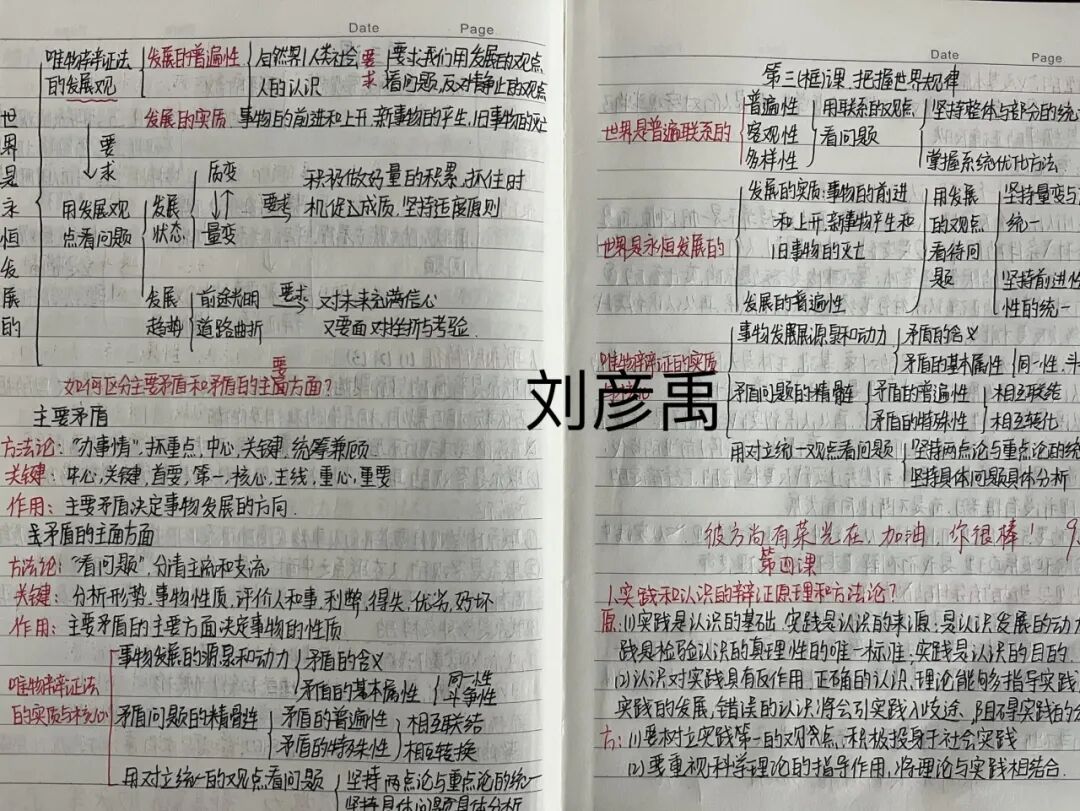 Date Page
唯物辩证法 发展的普遍性 自然界人类社会 要 要求我们用发展的观点
的发展观 人的认识 求 看问题,反对静止的观点
发展的实质:事物的前进和上升,新事物的产生,旧事物的灭亡
世界是永恒发展的
要求
用发展观 发展 质变 积极做好量的积累,抓住时
点看问题 状态 量变 要求 机促成质,坚持适度原则
发展 前途光明 要求 对未来充满信心
趋势 道路曲折 又要面对挫折与考验.
要
如何区分主要矛盾和矛盾的主面方面?
主要矛盾
方法论:"办事情",抓重点,中心,关键,统筹兼顾.
关键:中心,关键,首要,第一,核心,主线,重心,重要
作用:主要矛盾决定事物发展的方向.
矛盾的主面方面
方法论:"看问题",分清主流和支流
关键:分析形势,事物性质,评价人和事,利弊,得失,优劣,好坏
作用:主要矛盾的主要方面决定事物的性质
事物发展的源泉和动力 矛盾的含义
矛盾的基本属性 同一性
斗争性
唯物辩证法
的实质与核心 矛盾问题的精髓 矛盾的普遍性 相互联结
矛盾的特殊性 相互转换
用对立统一的观点看问题 坚持两点论与重点论的统一
坚持具体问题具体分析
Date Page
第三框课.把握世界规律
世界是普遍联系的 普遍性 用联系的观点 坚持整体与部分的统
客观性 看问题
多样性 掌握系统优化方法.
世界是永恒发展的 发展的实质:事物的前进 用发展 坚持量变与
和上升,新事物产生和 的观点 统一
旧事物的灭亡 看待问
题 坚持前进性
发展的普遍性 性的统一
唯物辩证的实质 事物发展源泉和动力 矛盾的含义
矛盾的基本属性 同一性.斗
矛盾问题的精髓 矛盾的普遍性 相互联结
矛盾的特殊性 相互转化
用对立统一观点看问题 坚持两点论与重点论的统
坚持具体问题具体分析
刘彦禹
彼方尚有荣光在,加油,你很棒! 9
第四课
1.实践和认识的辩证原理和方法论?
原:(1)实践是认识的基础.实践是认识的来源;是认识发展的动力
践是检验认识的真理性的唯一标准;实践是认识的目的.
(2)认识对实践具有反作用.正确的认识、理论能够指导实践
实践的发展,错误的认识将会引实践入歧途、阻碍实践的
方:(1)要树立实践第一的观点,积极投身于社会实践
(2)要重视科学理论的指导作用,将理论与实践相结合.